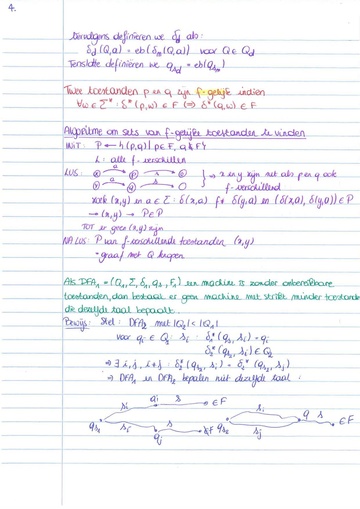 4.
Vervolgens definiëren we δd als:
δd(Q,a) = eb(δm(Q,a)) voor Q ∈ Qd
Tenslotte definiëren we qsd = eb(qsm)
Twee toestanden p en q zijn f-gelijk indien
∀w ∈ Σ* : δ*(p,w) ∈ F ⟺ δ*(q,w) ∈ F
Algoritme om sets van f-gelijke toestanden te vinden
INIT: P ← {(p,q) | p ∈ F, q ∉ F}
alle f-verschillen
LUS:
⇒ x en y zijn net als p en q ook
f-verschillend
zoek (x,y) en a ∈ Σ : δ(x,a) δ(y,a) en (δ(x,a), δ(y,a)) ∈ P
→ (x,y) → P ∈ P
TOT er geen (x,y) zijn
NA LUS: P van f-verschillende toestanden (x,y)
graaf met Q knopen
Als DFA₁ = (Q₁, Σ, δ₁, qs, F₁) een machine is zonder onbereikbare
toestanden, dan bestaat er geen machine met strikt minder toestanden
die dezelfde taal bepaalt.
Bewijs: Stel: DFA₂ met |Q₂| < |Q₁|
voor qi ∈ Q₁: si : δ₁*(qs₁, si) = qi
δ₂*(qs₂, si) ∈ Q₂
⇒ ∃ i, j, i ≠ j : δ₂*(qs₂, si) = δ₂*(qs₂, sj)
⇒ DFA₁ en DFA₂ bepalen niet dezelfde taal.
si qi s ∈ F si
qs₁ qs₂ q s ∈ F
sj qj s ∉ F sj